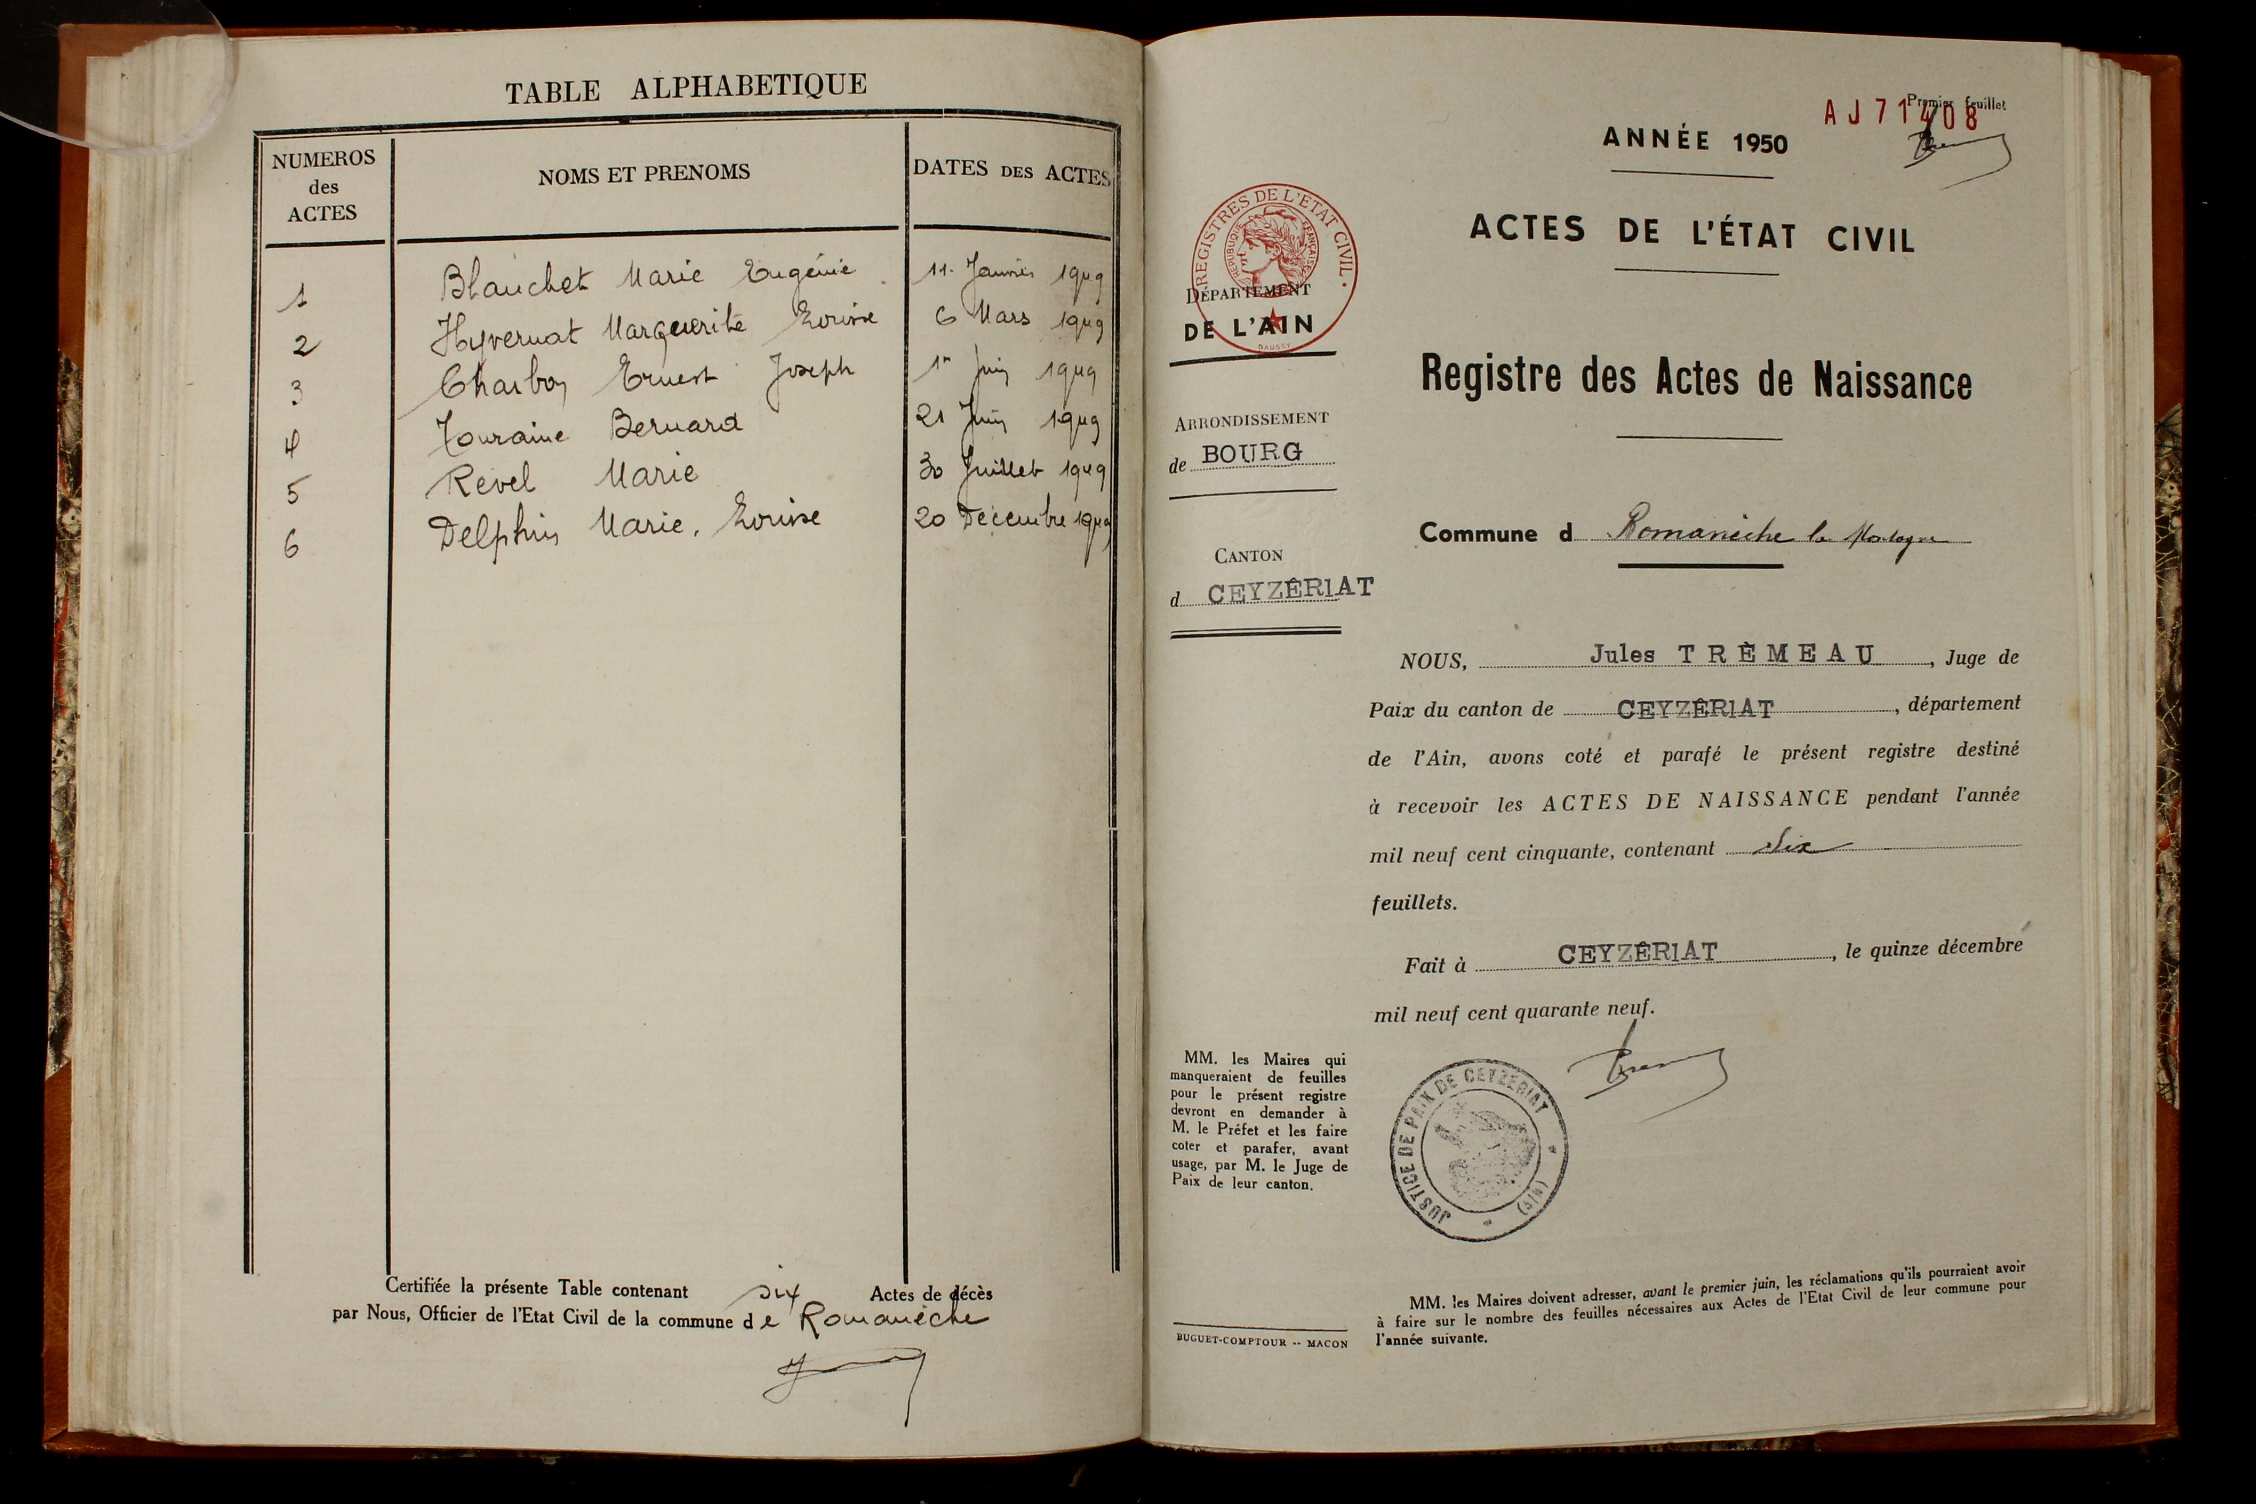 TABLE ALPHABETIQUE
NUMEROS des ACTES
NOMS ET PRENOMS
DATES DES ACTES
1 Blanchet Marie Eugénie 11 Janvier 1949
2 Hyvernat Marguerite Louise 6 Mars 1949
3 Charbon Ernest Joseph 1er Juin 1949
4 Touraine Bernard 21 Juin 1949
5 Revel Marie 30 Juillet 1949
6 Delphin Marie, Louise 20 Décembre 1949
Certifiée la présente Table contenant six Actes de décès
par Nous, Officier de l'Etat Civil de la commune de Romanèche
Premier feuillet
AJ71408
ANNÉE 1950
ACTES DE L'ÉTAT CIVIL
REGISTRES DE L'ETAT CIVIL
REPUBLIQUE FRANÇAISE
DAUSSY
DÉPARTEMENT
DE L'AIN
Registre des Actes de Naissance
ARRONDISSEMENT
de BOURG
CANTON
d CEYZÉRIAT
Commune d Romanèche la Montagne
NOUS, Jules TRÉMEAU, Juge de
Paix du canton de CEYZÉRIAT, département
de l'Ain, avons coté et parafé le présent registre destiné
à recevoir les ACTES DE NAISSANCE pendant l'année
mil neuf cent cinquante, contenant six
feuillets.
Fait à CEYZÉRIAT, le quinze décembre
mil neuf cent quarante neuf.
JUSTICE DE PAIX DE CEYZÉRIAT
MM. les Maires qui
manqueraient de feuilles
pour le présent registre
devront en demander à
M. le Préfet et les faire
coter et parafer, avant
usage, par M. le Juge de
Paix de leur canton.
BUGUET-COMPTOUR -- MACON
MM. les Maires doivent adresser, avant le premier juin, les réclamations qu'ils pourraient avoir
à faire sur le nombre des feuilles nécessaires aux Actes de l'Etat Civil de leur commune pour
l'année suivante.